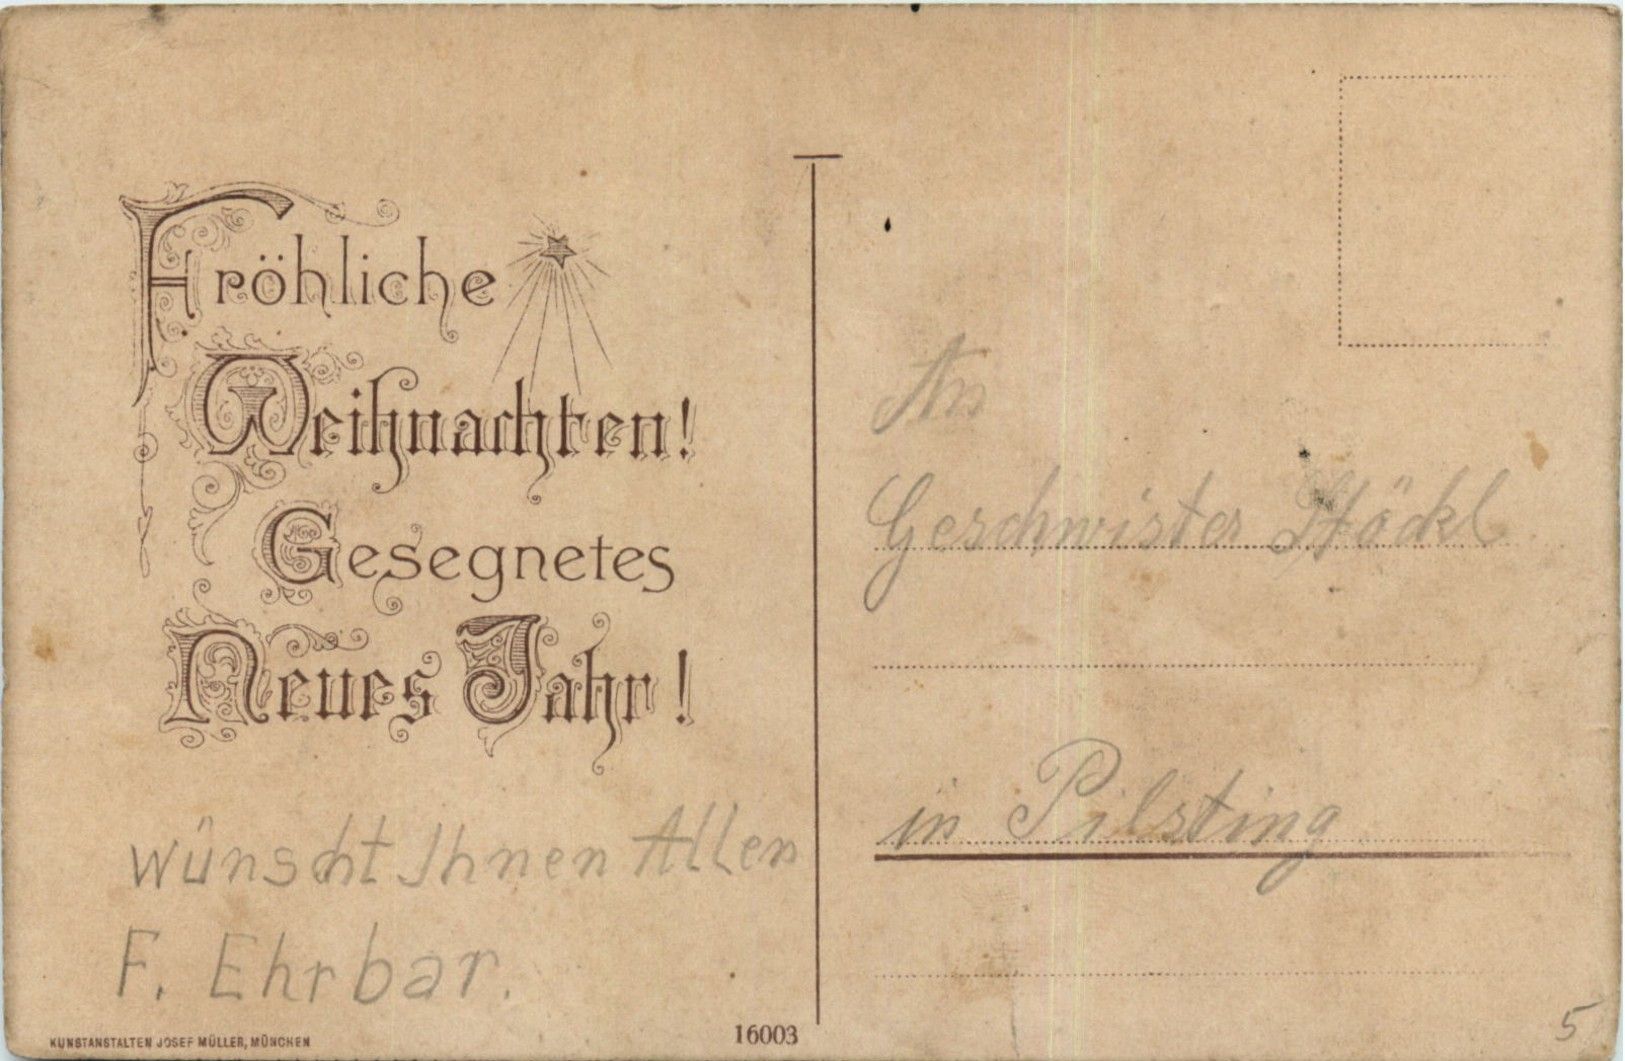 Fröhliche
Weihnachten!
Gesegnetes
Neues Jahr!
wünscht Ihnen Allen
F. Ehrbar.
KUNSTANSTALTEN JOSEF MÜLLER, MÜNCHEN
16003
An
Geschwister Stöckl
in Pilsting
5